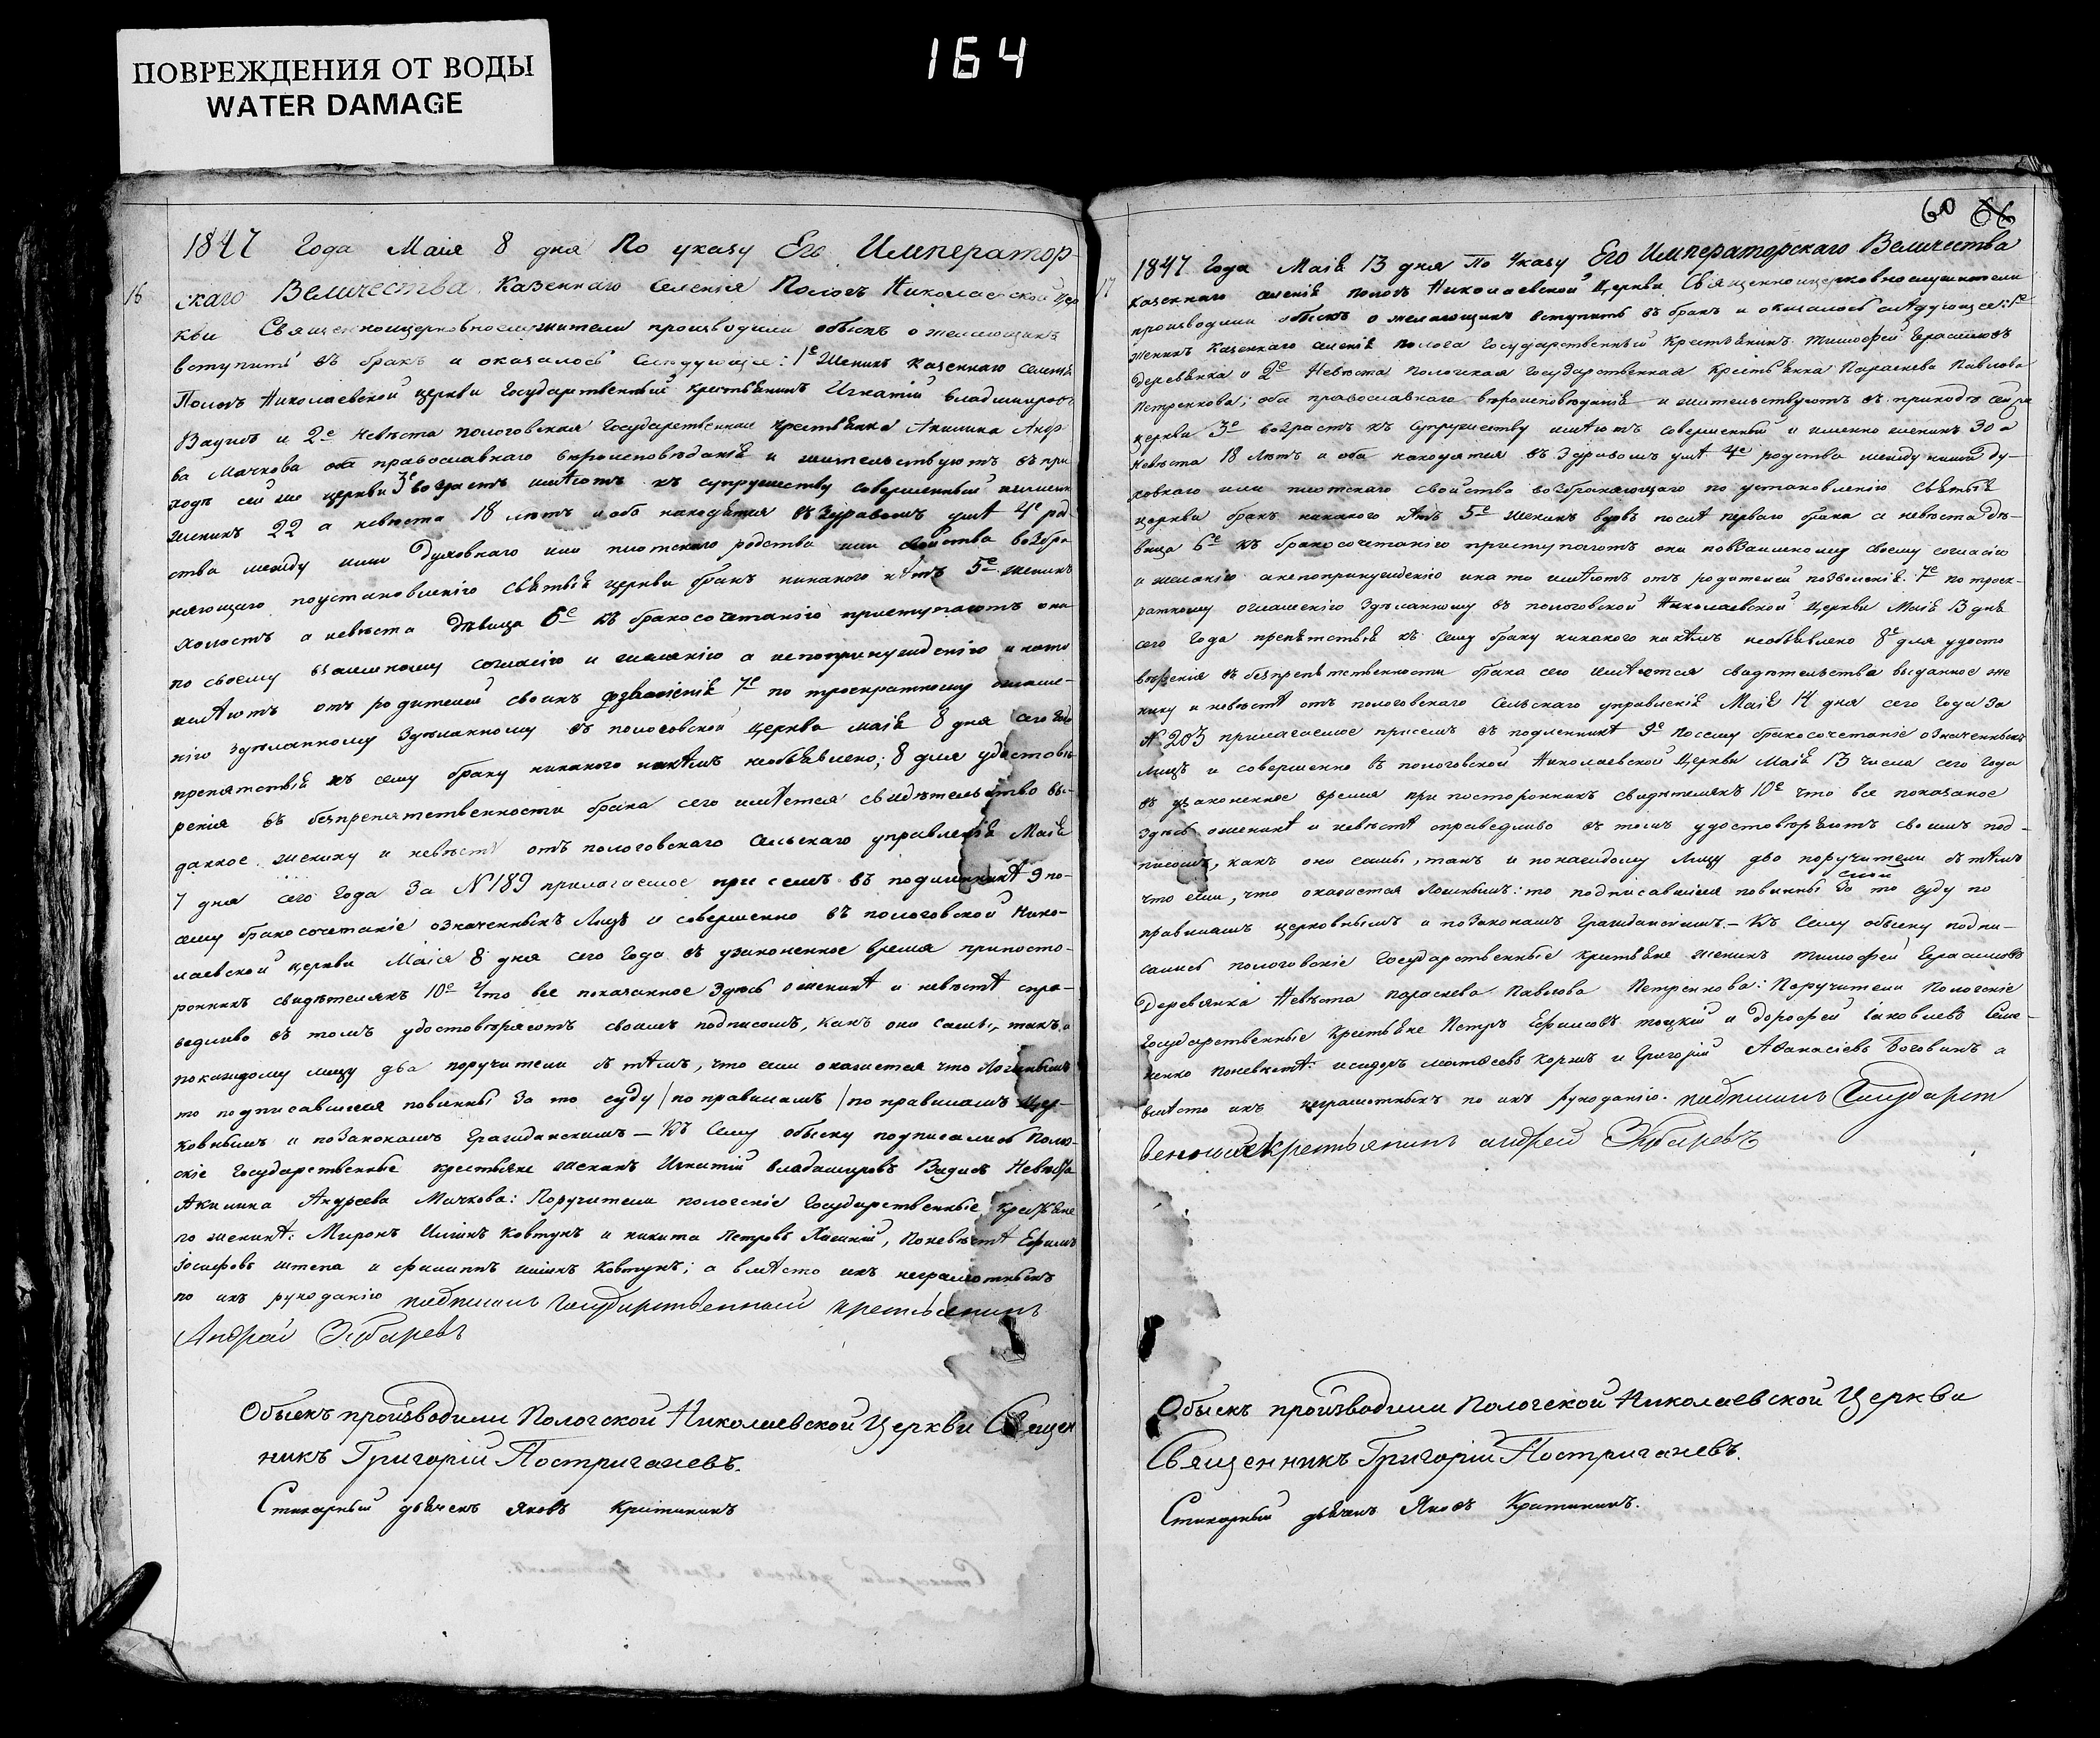 ПОВРЕЖДЕНИЯ ОТ ВОДЫ
WATER DAMAGE
164
16
1847 Года Маія 8 дня По указу Его Император-
скаго Величества Казеннаго Селенія Пологъ Николаевской цер
кви Священноицерковнослужители производили обыскъ о желающихъ
вступить въ бракъ и оказалось слѣдующее: 1е Женихъ Казеннаго селенія
Пологъ Николаевской церкви Государственный крестьянинъ Игнатій Владимировъ
и 2е Невѣста пологовская Государственная крестьянка Акилина Андр
ва Мачкова оба православнаго вѣроисповѣданія и жительствуютъ въ при
ходѣ сей же церкви 3е возрастъ имѣютъ къ супружеству совершенный и именн
женихъ 22 а невѣста 18 лѣтъ и оба находятся въ здравомъ умѣ 4е род
ства между ими духовнаго или плотскаго родства или свойства возбра
няющаго поустановленію святыя церкви бракъ никакого нѣтъ 5е женихъ
холостъ а невѣста дѣвица 6е къ бракосочетанію приступаютъ они
по своему взаимному согласію и желанію а непопринужденію и нато
имѣютъ отъ родителей своихъ дозволеніе 7е по троекратному оглаше-
нію здѣланному въ пологовской церкви маія 8 дня сего года
препятствія къ сему браку никакого никѣмъ необъявлено; 8 для удостовѣ
ренія въ безпрепятственности брака сего имѣется свидѣтельство вы-
данное жениху и невѣстѣ отъ пологовскаго сельскаго управленія Маія
7 дня сего Года За № 189 прилагаемое при семъ въ подлинникѣ 9 по-
сему бракосочетаніе означенныхъ Лицъ и совершенно въ пологовской Нико-
лаевской церкви Маія 8 дня сего Года въ узаконенное время припосто-
роннихъ свидѣтеляхъ 10е Что все показанное здѣсь о женихѣ и невѣстѣ спра-
ведливо въ томъ удостовѣряютъ своимъ подписомъ, какъ они сами, такъ и
покаждому лицу два поручителя съ тѣмъ, что если окажется что Ложнымъ
то подписавшіеся повинны За то суду /по правиламъ /по правиламъ цер-
ковнымъ и позаконамъ Гражданскимъ — Къ Сему обыску подписались Полог-
скіе Государственные крестьяне женихъ Игнатій Владимировъ Невѣста
Акилина Андреева Мачкова: Поручители пологскіе Государственные Крестьяне
по женихѣ: Миронъ Ковтунъ и никита Петровъ, Поневѣстѣ Ефимъ
Іосифовъ штепа и филиппъ Ковтунъ; а вмѣсто ихъ неграмотныхъ
по ихъ рукоданію подписалъ Государственный крестьянинъ
Андрей Зубаревъ
Обыскъ производили Пологской Николаевской Церкви Священ
никъ Григорій Постригачевъ.
Стихарный дьячекъ Яковъ
60 66
17
1847 Года Маія 13 дня По Указу Его Императорскаго Величества
казеннаго селенія пологъ Николаевской Церкви Священноицерковнослужители
производили обыскъ о желающихъ вступить въ бракъ и оказалось слѣдующее: 1е
женихъ Казеннаго селенія Полога Государственный Крестьянинъ Тимофей Герасимовъ
Деревянка и 2е Невѣста Пологская Государственная Крестьянка Параскева Павлова
Петренкова; оба православнаго вѣроисповѣданія и жительствуютъ въ приходѣ сей же
церкви 3е возрастъ къ супружеству имѣютъ совершенный и именно женихъ 30 а
невѣста 18 лѣтъ и оба находятся въ здравомъ умѣ 4е родства между ними ду-
ховнаго или плотскаго свойства возбраняющаго по установленію святыя
церкви бракъ никакого нѣтъ 5е женихъ вдовъ послѣ перваго брака а невѣста дѣ-
вица 6е къ бракосочетанію приступаютъ они повзаимному своему согласію
и желанію анепопринужденію ина то имѣютъ отъ родителей позволеніе. 7е по троек-
ратному оглашенію здѣланному въ пологовской Николаевской Церкви Маія 13 дня
сего Года препятствія къ сему браку никакого никѣмъ необъявлено 8е для удосто
вѣренія въ безпрепятственности брака сего имѣется свидѣтельства выданное же
ниху и невѣстѣ отъ пологовскаго Сельскаго управленія Маія 14 дня сего Года За
№ 203 прилагаемое присемъ въ подлинникѣ 9е Посему бракосочетаніе означенныхъ
Лицъ и совершенно въ пологовской Николаевской Церкви Маія 13 числа сего Года
въ узаконенное время при постороннихъ свидѣтеляхъ 10е что все показаное
здѣсь оженихѣ и невѣстѣ справедливо въ томъ удостовѣряютъ своимъ под-
писомъ, какъ они сами, такъ и покаждому Лицу два поручителя съ тѣмъ
что если, что окажется Ложнымъ: то подписавшіеся повинны За то суду по
правиламъ церковнымъ и позаконамъ Гражданскимъ. — Къ Сему обыску подпи-
сались пологовскіе Государственные крестьяне женихъ тимофей Герасимовъ
Деревянка Невѣста параскева Павлова Петренкова: Поручители Пологскіе
Государственные Крестьяне Петръ Ефимовъ и дорофей Іаковлевъ Семе-
ненко Поневѣстѣ: исидоръ матвѣевъ Коржъ и Григорій Аѳанасіевъ а
вмѣсто ихъ неграмотныхъ по ихъ рукоданію. подписалъ Государст
венный Крестьянинъ андрей Зубаревъ
Обыскъ производили Пологской Николаевской Церкви
Священникъ Григорій Постригачевъ.
Стихарный дьячекъ Яковъ